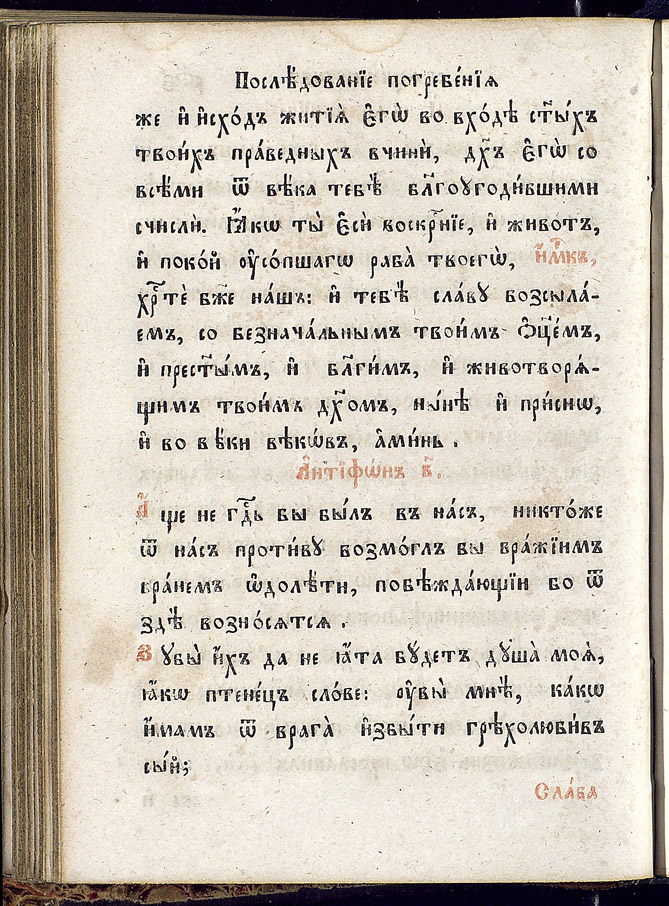 Послѣ́дованїе погребе́нїѧ
же и҆ и҆схо́дъ житїѧ̀ є҆гѡ̀ во вхо́дѣ ст҃ы́хъ
твои́хъ пра́ведныхъ вчинѝ, дх҃ъ є҆гѡ̀ со
всѣ́ми ѿ вѣ́ка тебѣ̀ бл҃гоꙋгоди́вшими
счислѝ. Ꙗ҆́кѡ ты̀ є҆сѝ воскр҃нїе, и҆ живо́тъ,
и҆ поко́й ᲂу҆со́пшагѡ раба̀ твоегѡ̀, и҆́м҃къ,
хрⷭ҇тѐ бж҃е на́шъ: и҆ тебѣ̀ сла́вꙋ возсыла́-
емъ, со безнача́льнымъ твои́мъ ѻ҆ц҃е́мъ,
и҆ прест҃ы́мъ, и҆ бл҃ги́мъ, и҆ животворѧ́-
щимъ твои́мъ дх҃омъ, ны́нѣ и҆ при́снѡ,
и҆ во вѣ́ки вѣкѡ́въ, а҆ми́нь.
А҆нтїфѡ́нъ в҃.
А҆́ще не гдⷭ҇ь бы бы́лъ въ на́съ, никто́же
ѿ на́съ проти́вꙋ возмо́глъ бы вра́жїимъ
бра́немъ ѡ҆долѣ́ти, побѣжда́ющїи бо ѿ
здѣ̀ возно́сѧтсѧ.
Зꙋбы̀ и҆́хъ да не ꙗ҆́та бꙋ́детъ дꙋша̀ моѧ̀,
ꙗ҆́кѡ птене́цъ сло́ве: ᲂу҆вы̀ мнѣ̀, ка́кѡ
и҆́мамъ ѿ врага̀ и҆збы́ти грѣхолюби́въ
сы́й;
Сла́ва